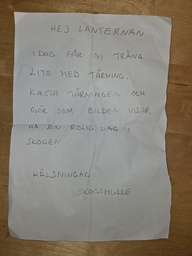 HEJ LANTERNAN
IDAG FÅR VI TRÄNA
LITE MED TÄRNING.
KASTA TÄRNINGEN OCH
GÖR SOM BILDEN VISAR
HA EN ROLIG DAG I
SKOGEN
HÄLSNINGAR
SKOGSMULLE